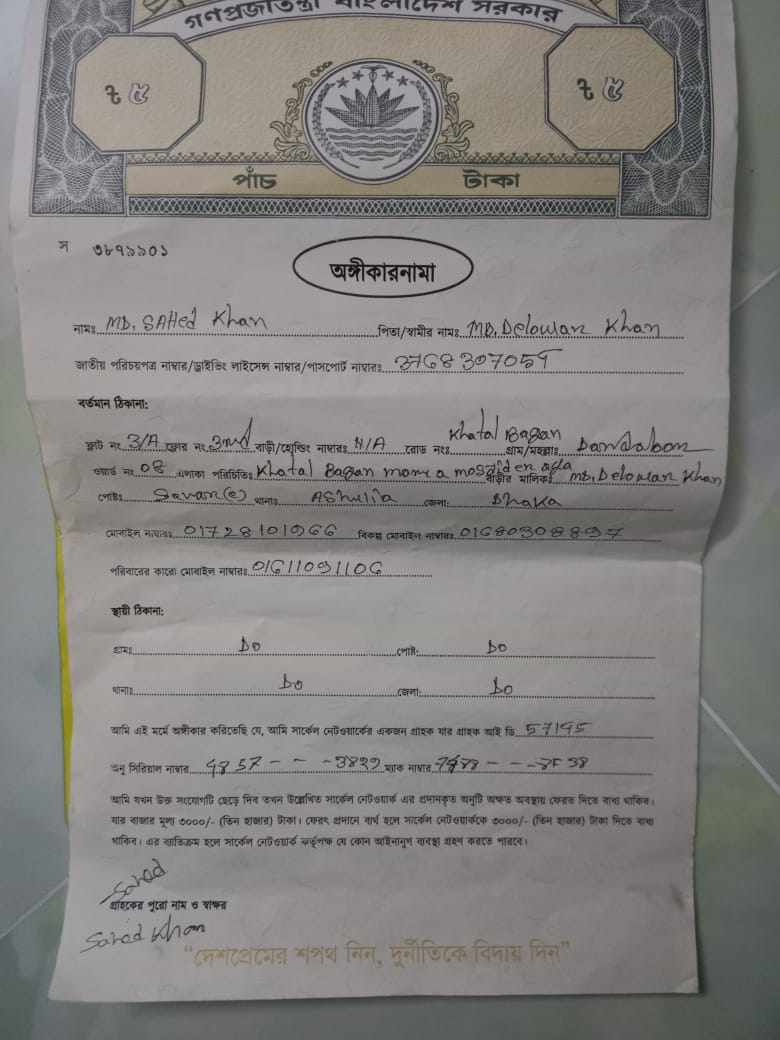 গণপ্রজাতন্ত্রী বাংলাদেশ সরকার
৳ ৫ ৳ ৫
পাঁচ টাকা
স ৩৮৭৯৯০১
অঙ্গীকারনামা
নামঃ MD, SAHed Khan পিতা/স্বামীর নামঃ MD, Delowar Khan
জাতীয় পরিচয়পত্র নাম্বার/ড্রাইভিং লাইসেন্স নাম্বার/পাসপোর্ট নাম্বারঃ 3768307059
বর্তমান ঠিকানা:
ফ্লাট নং 3/A ফ্লোর নং 3rd বাড়ী/হোল্ডিং নাম্বারঃ N/A রোড নংঃ Khatal Bagan গ্রাম/মহল্লাঃ
ওয়ার্ড নং 08 এলাকা পরিচিতিঃ Khatal Bagan বাড়ীর মালিকঃ MD, Delowar Khan
পোষ্টঃ থানাঃ AShulia জেলা: Dhaka
মোবাইল নাম্বারঃ 01728101966 বিকল্প মোবাইল নাম্বারঃ
পরিবারের কারো মোবাইল নাম্বারঃ 01611091106
স্থায়ী ঠিকানা:
গ্রামঃ Do পোষ্ট: Do
থানাঃ Do জেলা: Do
আমি এই মর্মে অঙ্গীকার করিতেছি যে, আমি সার্কেল নেটওয়ার্কের একজন গ্রাহক যার গ্রাহক আই ডি 57195
অনু সিরিয়াল নাম্বার 4857 - - -3829 ম্যাক নাম্বার
আমি যখন উক্ত সংযোগটি ছেড়ে দিব তখন উল্লেখিত সার্কেল নেটওয়ার্ক এর প্রদানকৃত অনুটি অক্ষত অবস্থায় ফেরত দিতে বাধ্য থাকিব।
যার বাজার মূল্য ৩০০০/- (তিন হাজার) টাকা। ফেরৎ প্রদানে ব্যর্থ হলে সার্কেল নেটওয়ার্ককে ৩০০০/- (তিন হাজার) টাকা দিতে বাধ্য
থাকিব। এর ব্যতিক্রম হলে সার্কেল নেটওয়ার্ক কর্তৃপক্ষ যে কোন আইনানুগ ব্যবস্থা গ্রহণ করতে পারবে।
Sahed
গ্রাহকের পুরো নাম ও স্বাক্ষর
Sahed Khan
“দেশপ্রেমের শপথ নিন, দুর্নীতিকে বিদায় দিন”